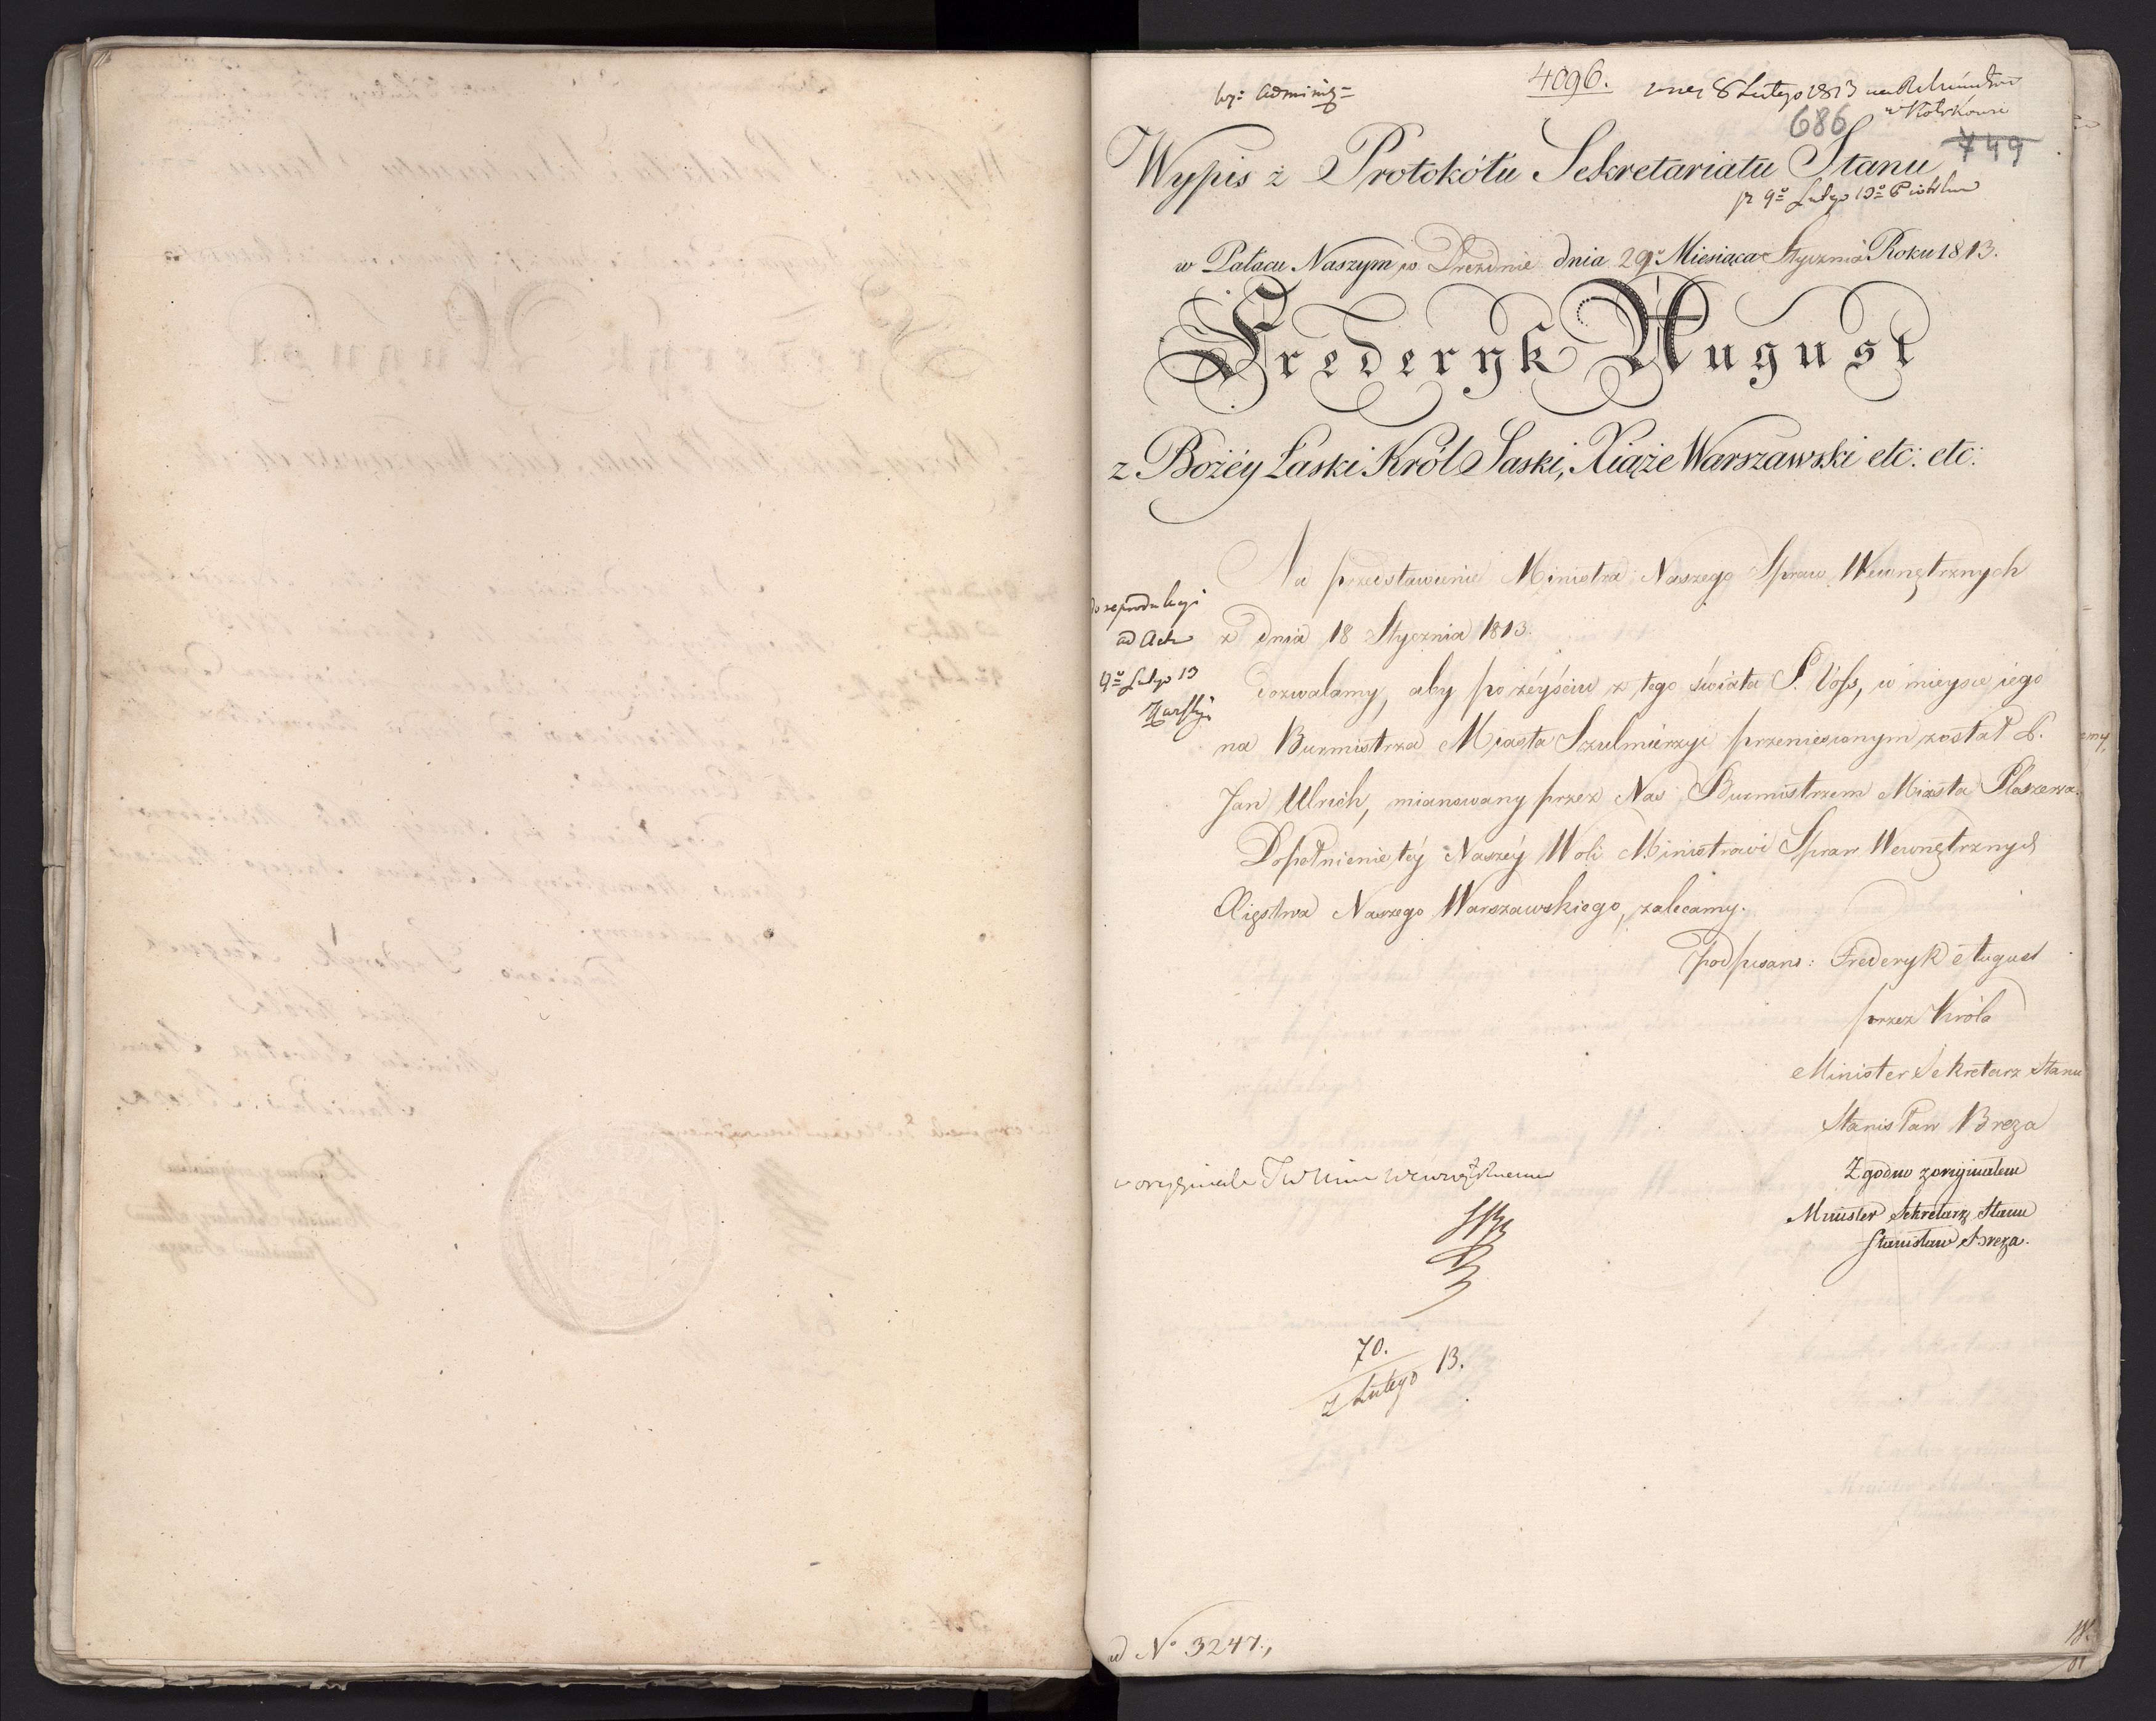 wy: Adminis=
4096.
wnes 8 Lutego 1813
w Piotrkowie
686
749
Wypis z Protokółu Sekretariatu Stanu
pr 9º Lutego 13º Piotrków
w Pałacu Naszym w Dreznie dnia 29º Miesiąca Stycznia Roku 1813.
Frederyk August
z Bożéy Łaski Król Saski, Xiąże Warszawski etc: etc:
Na przedstawienie Ministra Naszego Spraw Wewnętrznych
z dnia 18 Stycznia 1813.
dozwalamy, aby po zéyściu z tego świata P. Voss, w mieysce iego
na Burmistrza Miasta Szulmierzyc przeniesionym został P.
Jan Ulrich, mianowany przez Nas Burmistrzem Miasta Pleszewa.
Dopełnienie téy Naszéy Woli Ministrowi Spraw Wewnętrznych
Xięstwa Naszego Warszawskiego, zalecamy.
do reprodukcyi
ad Acta
9º Lutego 13
podpisano: Frederyk August
przez Króla
Minister Sekretarz Stanu
Stanisław Breza
Zgodno z oryginałem
Minister Sekretarz Stanu
Stanisław Breza.
w oryginale
70.
2 Lutego 13.
ad Nº 3247.,